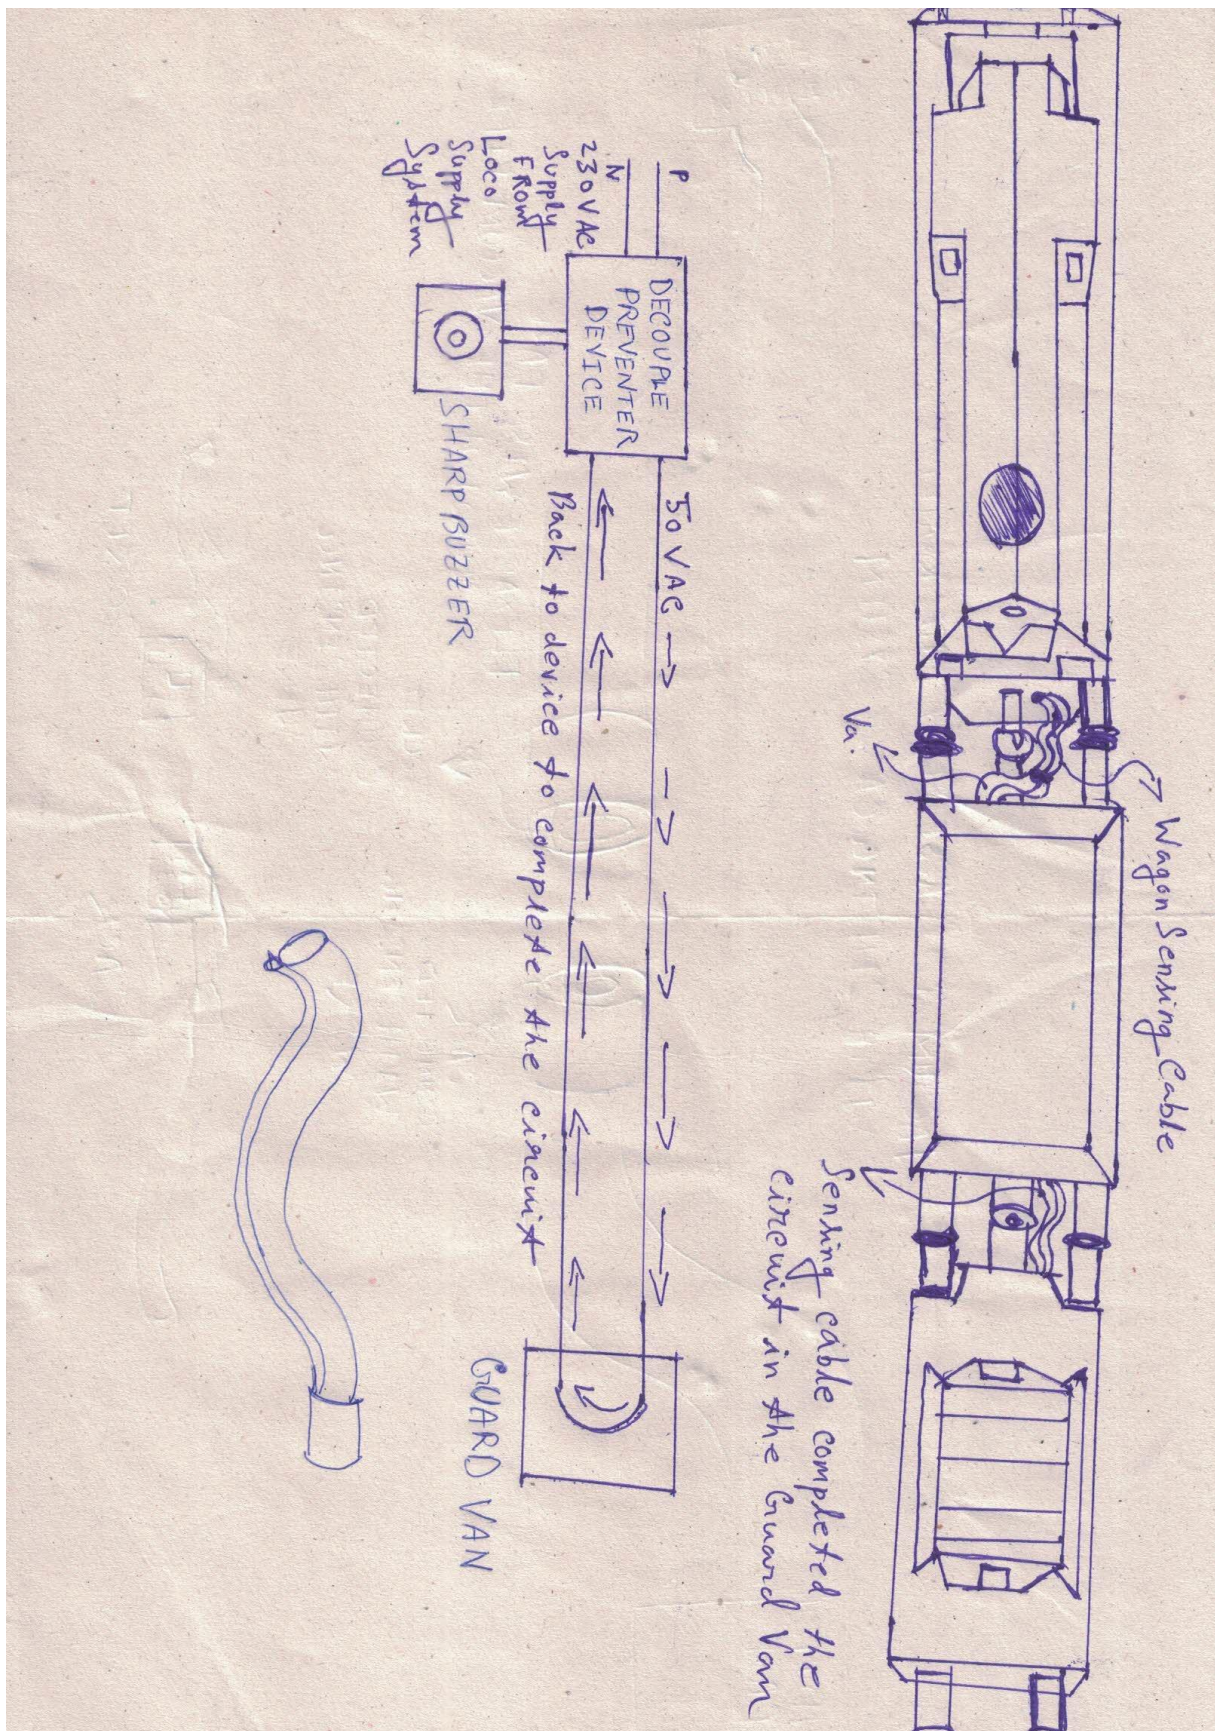 Wagon Sensing Cable
Va.
Sensing cable completed the
circuit in the Guard Van
P
N
230VAC
Supply
FROM
Loco
Supply
System
DECOUPLE
PREVENTER
DEVICE
50 VAC
Back to device to complete the circuit
SHARP BUZZER
GUARD VAN